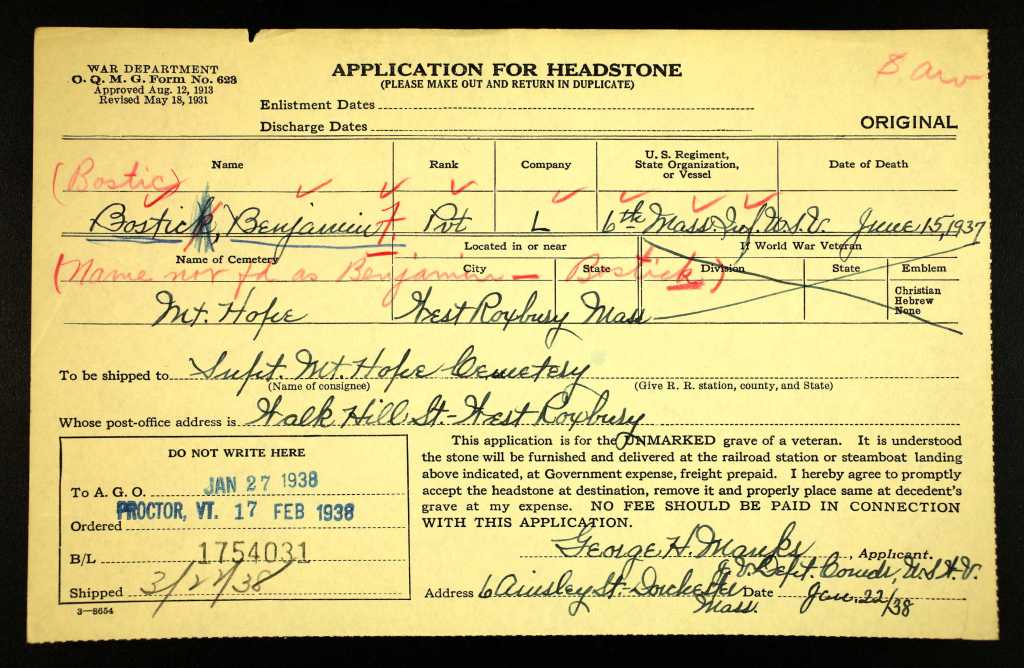 WAR DEPARTMENT
O. Q. M. G. Form No. 623
Approved Aug. 12, 1913
Revised May 18, 1931
APPLICATION FOR HEADSTONE
(PLEASE MAKE OUT AND RETURN IN DUPLICATE)
Enlistment Dates
Discharge Dates
ORIGINAL
Name Rank Company U. S. Regiment, State Organization, or Vessel Date of Death
(Bostic)
Bostick, Benjamin F. Pvt L 6th Mass. Inf. U.S.V. June 15, 1937
Name of Cemetery Located in or near If World War Veteran
City State Division State Emblem
(Name not f'd as Benjamin — Bostick)
Christian
Hebrew
None
Mt. Hope West Roxbury Mass
To be shipped to Supt. Mt. Hope Cemetery
(Name of consignee) (Give R. R. station, county, and State)
Whose post-office address is Walk Hill St. - West Roxbury
DO NOT WRITE HERE
To A. G. O. JAN 27 1938
Ordered PROCTOR, VT. 17 FEB 1938
B/L 1754031
Shipped 3/22/38
3—8654
This application is for the UNMARKED grave of a veteran. It is understood
the stone will be furnished and delivered at the railroad station or steamboat landing
above indicated, at Government expense, freight prepaid. I hereby agree to promptly
accept the headstone at destination, remove it and properly place same at decedent's
grave at my expense. NO FEE SHOULD BE PAID IN CONNECTION
WITH THIS APPLICATION.
George H. Manks, Applicant.
Dept. Comdr, U.S.W.V.
Address 6 Ainsley St. - Dorchester Mass. Date Jan. 22/38